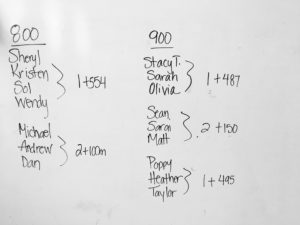 800
Sheryl
Kristen
Sol
Wendy
1+554
Michael
Andrew
Dan
2+100m
900
Stacy T.
Sarah
Olivia
1+487
Sean
Saran
Matt
2+150
Poppy
Heather
Taylor
1+495